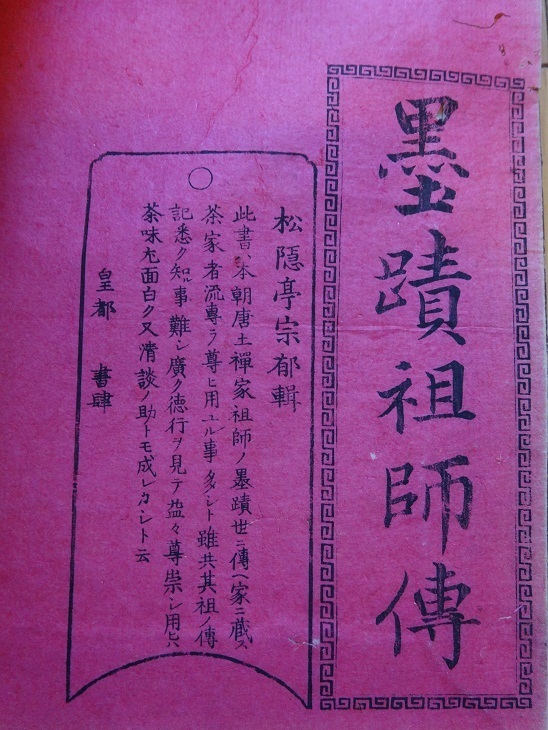 墨蹟祖師傳
松隠亭宗郁輯
此書ハ本朝唐土禪家祖師ノ墨蹟世ニ傳ヘ家ニ蔵ス
茶家者流專ラ尊ヒ用ユル事多シト雖共其祖ノ傳
記悉ク知事難シ廣ク德行ヲ見テ益々尊崇シ用ヒハ
茶味尤面白ク又清談ノ助トモ成レカシト云
皇都 書肆